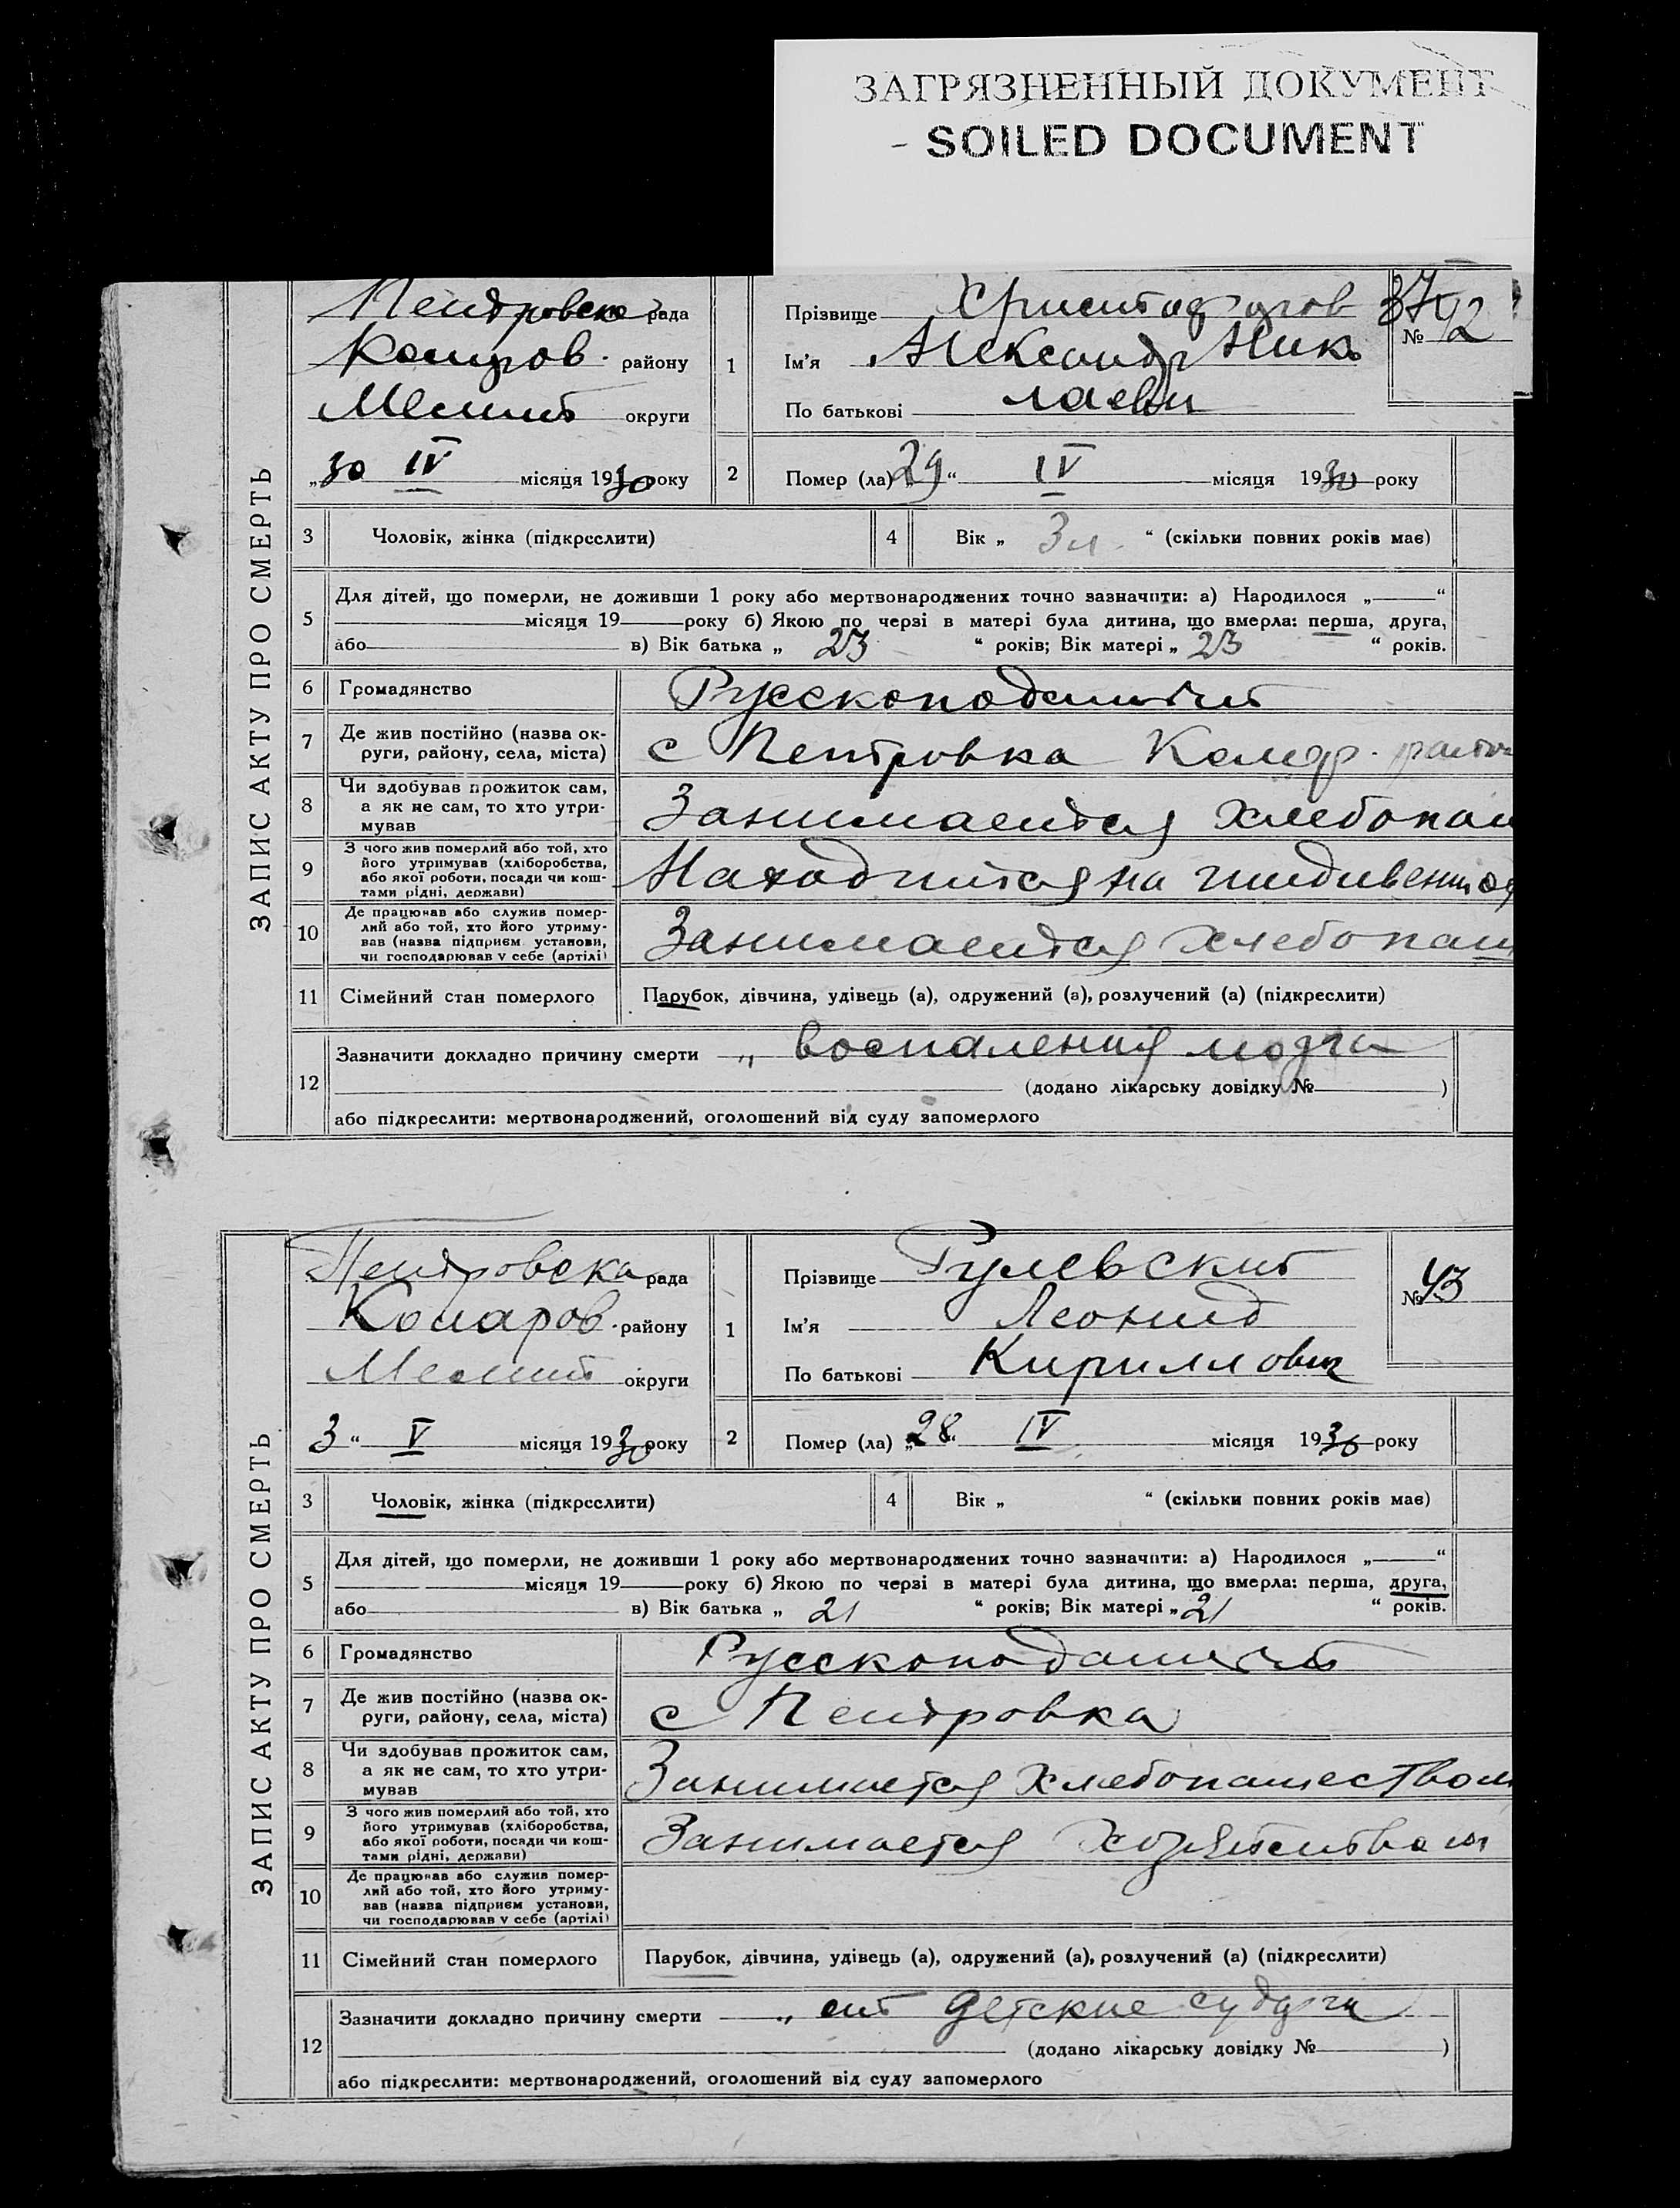 ЗАГРЯЗНЕННЫЙ ДОКУМЕНТ
- SOILED DOCUMENT
ЗАПИС АКТУ ПРО СМЕРТЬ
Петровска рада
района району
округи
„30 IV місяця 1930 року
1
Прізвище Христофоров
Ім’я Александр Нико
По батькові лаевич
№ 42
2
Помер (ла) „29“ IV місяця 1930 року
3 Чоловік, жінка (підкреслити)
4 Вік „ 3 “ (скільки повних років має)
5
Для дітей, що померли, не доживши 1 року або мертвонароджених точно зазначити: а) Народилося „ “
місяця 19 року б) Якою по черзі в матері була дитина, що вмерла: перша, друга,
або в) Вік батька „ 23 “ років; Вік матері „ 23 “ років.
6 Громадянство Русскоподаний
7 Де жив постійно (назва ок-
руги, району, села, міста) с Петровка Комар.
8 Чи здобував прожиток сам,
а як не сам, то хто утри-
мував Занимается хлебопаш
9 З чого жив померлий або той, хто
його утримував (хліборобства,
або якої роботи, посади чи кош-
тами рідні, держави) Находится на иждивении
10 Де працював або служив помер-
лий або той, хто його утриму-
вав (назва підприєм. установи,
чи господарював у себе (артілі) Занимается хлебопаш
11 Сімейний стан померлого Парубок, дівчина, удівець (а), одружений (а), розлучений (а) (підкреслити)
12
Зазначити докладно причину смерти „ воспаления мозга
(додано лікарську довідку № )
або підкреслити: мертвонароджений, оголошений від суду запомерлого
ЗАПИС АКТУ ПРО СМЕРТЬ
Петровска рада
Комаров. району
округи
3 “ V місяця 1930 року
1
Прізвище Гулевский
Ім’я Леонид
По батькові Кириллович
№ 43
2
Помер (ла) „28“ IV місяця 1930 року
3 Чоловік, жінка (підкреслити)
4 Вік „ “ (скільки повних років має)
5
Для дітей, що померли, не доживши 1 року або мертвонароджених точно зазначити: а) Народилося „ “
місяця 19 року б) Якою по черзі в матері була дитина, що вмерла: перша, друга,
або в) Вік батька „ 21 “ років; Вік матері „ 21 “ років.
6 Громадянство Русскоподаний
7 Де жив постійно (назва ок-
руги, району, села, міста) с Петровка
8 Чи здобував прожиток сам,
а як не сам, то хто утри-
мував Занимается хлебопашеством
9 З чого жив померлий або той, хто
його утримував (хліборобства,
або якої роботи, посади чи кош-
тами рідні, держави) Занимается хозяйством
10 Де працював або служив помер-
лий або той, хто його утриму-
вав (назва підприєм установи,
чи господарював у себе (артілі)
11 Сімейний стан померлого Парубок, дівчина, удівець (а), одружений (а), розлучений (а) (підкреслити)
12
Зазначити докладно причину смерти „ от детские
(додано лікарську довідку № )
або підкреслити: мертвонароджений, оголошений від суду запомерлого